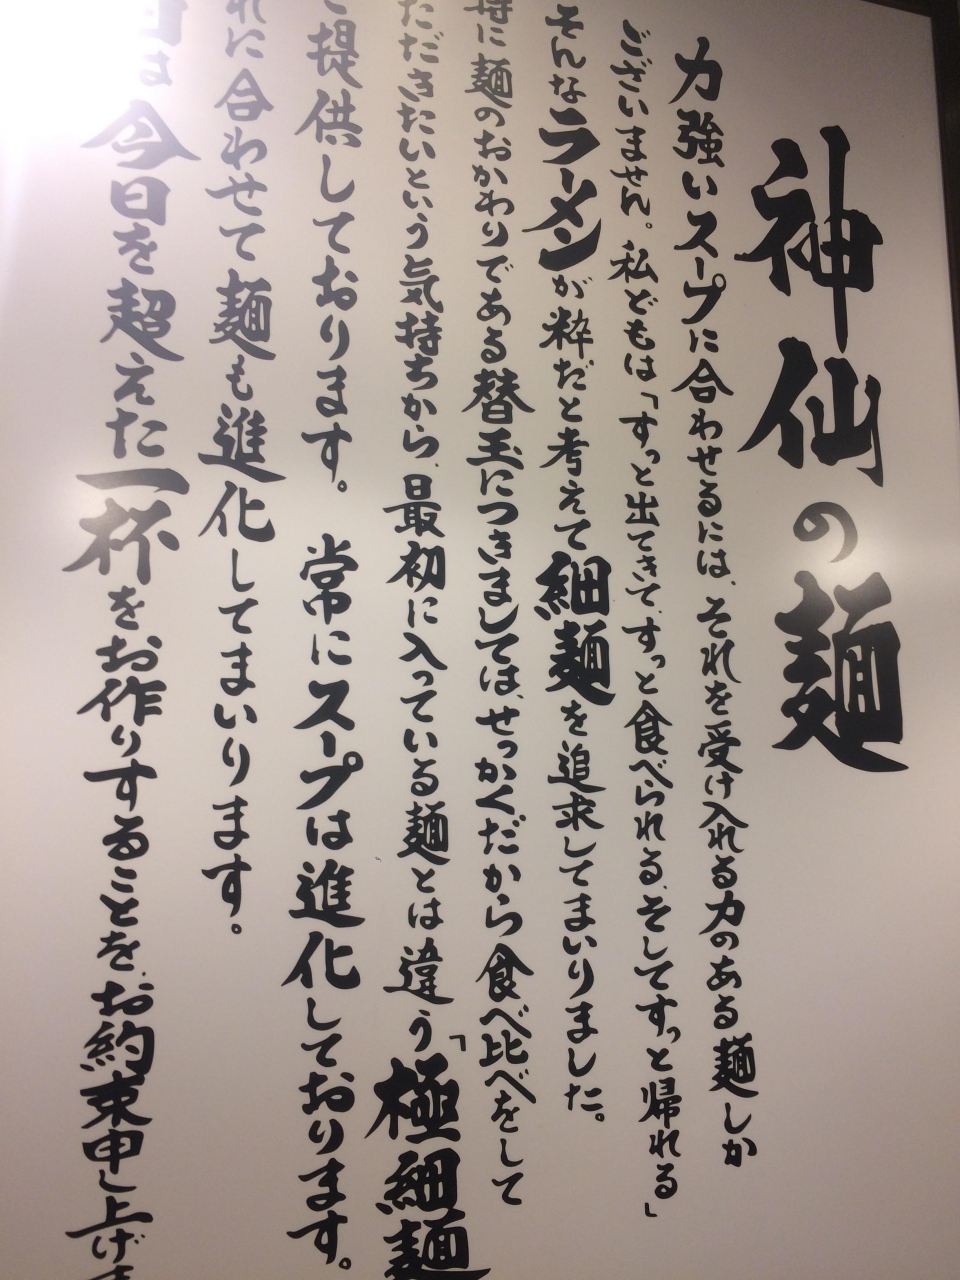 神仙の麺
力強いスープに合わせるには、それを受け入れる力のある麺しか
ございません。私どもは「すっと出てきて、すっと食べられる、そしてすっと帰れる」
そんなラーメンが粋だと考えて細麺を追求してまいりました。
特に麺のおかわりである替玉につきましては、せっかくだから食べ比べをして
ただきたいという気持ちから、最初に入っている麺とは違う「極細麺
ご提供しております。 常にスープは進化しております。
れに合わせて麺も進化してまいります。
日は今日を超えた一杯をお作りすることを、お約束申し上げま